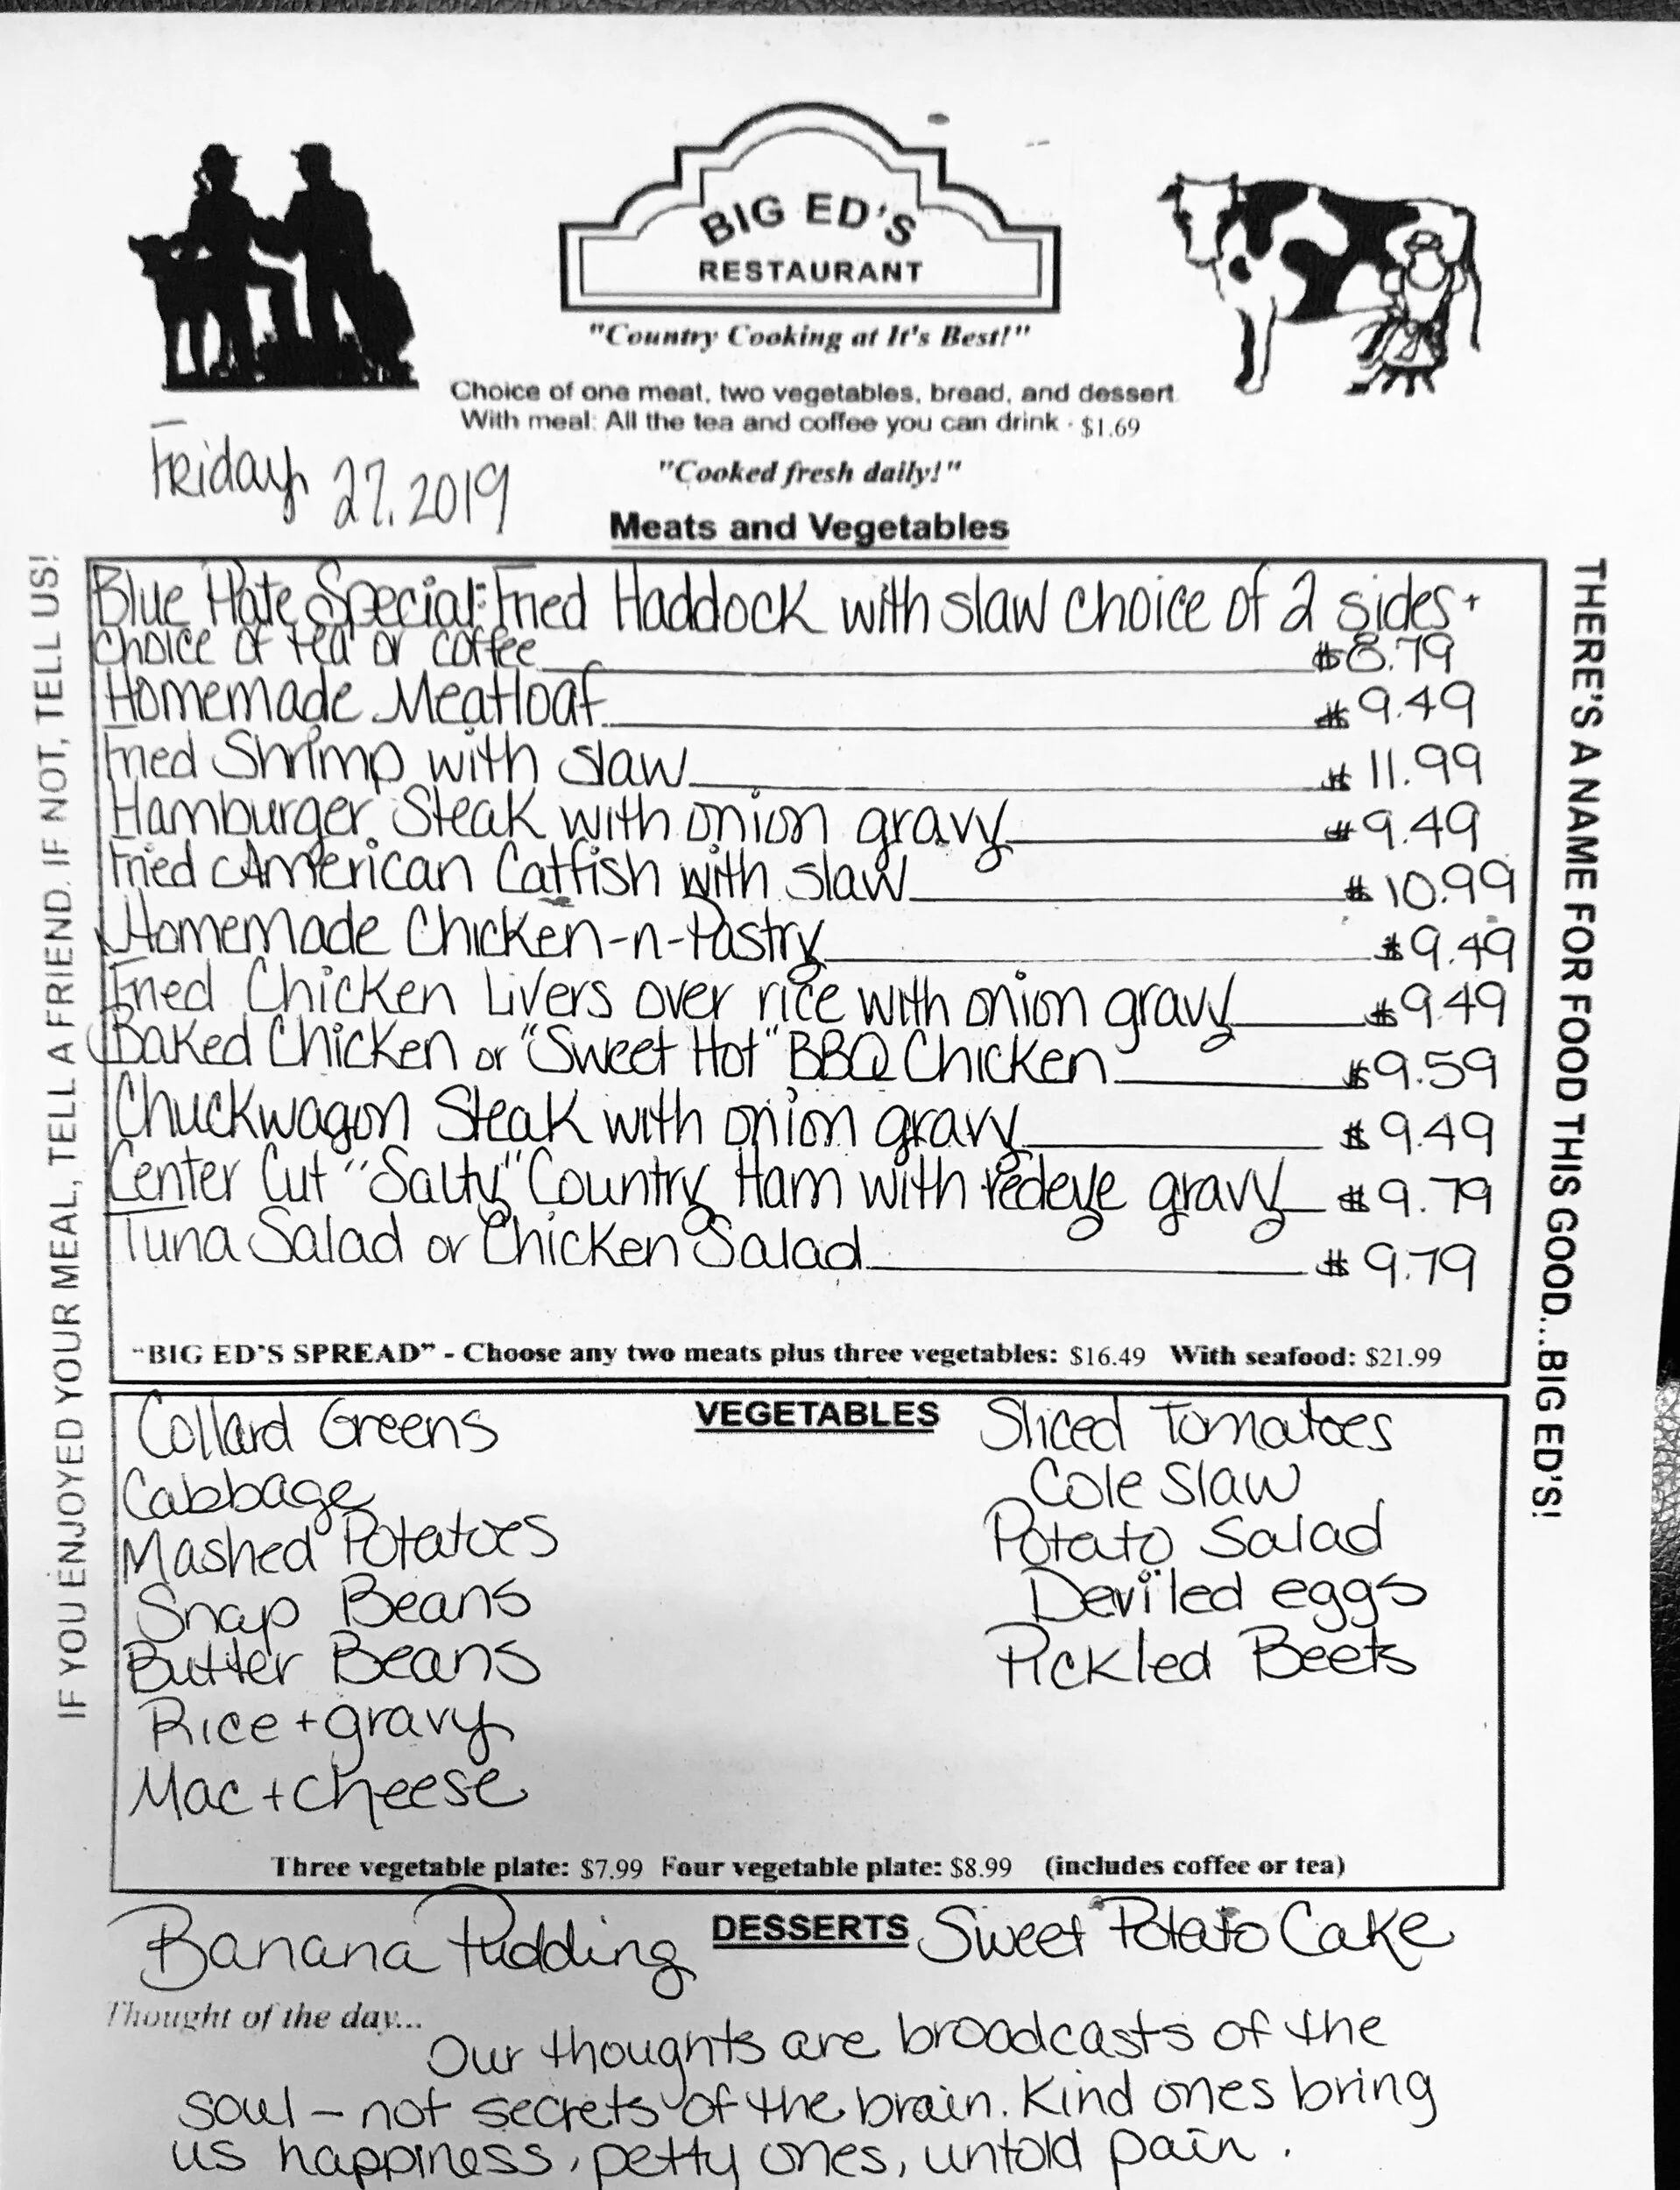 BIG ED'S
RESTAURANT
"Country Cooking at It's Best!"
Choice of one meat, two vegetables, bread, and dessert
With meal: All the tea and coffee you can drink - $1.69
"Cooked fresh daily!"
Friday, 27, 2019
Meats and Vegetables
Blue Plate Special: Fried Haddock with slaw choice of 2 sides +
choice of tea or coffee $8.79
Homemade Meatloaf $9.49
Fried Shrimp with slaw $11.99
Hamburger Steak with onion gravy $9.49
Fried American Catfish with slaw $10.99
Homemade Chicken-n-Pastry $9.49
Fried Chicken Livers over rice with onion gravy $9.49
Baked Chicken or "Sweet Hot" BBQ Chicken $9.59
Chuckwagon Steak with onion gravy $9.49
Center Cut "Salty" Country Ham with redeye gravy $9.79
Tuna Salad or Chicken Salad $9.79
"BIG ED'S SPREAD" - Choose any two meats plus three vegetables: $16.49 With seafood: $21.99
VEGETABLES
Collard Greens
Cabbage
Mashed Potatoes
Snap Beans
Butter Beans
Rice + gravy
Mac + cheese
Sliced Tomatoes
Cole Slaw
Potato Salad
Deviled eggs
Pickled Beets
Three vegetable plate: $7.99 Four vegetable plate: $8.99 (includes coffee or tea)
DESSERTS
Banana Pudding
Sweet Potato Cake
Thought of the day...
Our thoughts are broadcasts of the
soul - not secrets of the brain. Kind ones bring
us happiness, petty ones, untold pain.
IF YOU ENJOYED YOUR MEAL, TELL A FRIEND. IF NOT, TELL US!
THERE'S A NAME FOR FOOD THIS GOOD...BIG ED'S!